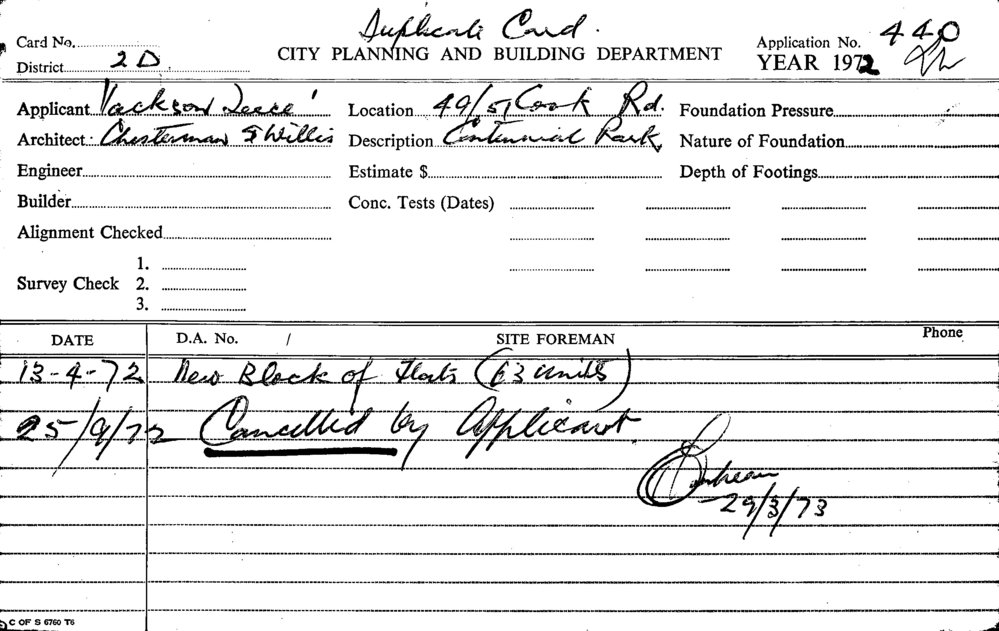 Duplicate Card.
Card No.
CITY PLANNING AND BUILDING DEPARTMENT
Application No. 440
District 2D
YEAR 1972
Applicant Jackson Teece
Location 49/51 Cook Rd.
Foundation Pressure
Architect Chesterman & Willis
Description Centennial Park
Nature of Foundation
Engineer
Estimate $
Depth of Footings
Builder
Conc. Tests (Dates)
Alignment Checked
Survey Check 1.
2.
3.
DATE D.A. No. / SITE FOREMAN Phone
13-4-72 New Block of Flats (63 units)
25/9/72 Cancelled by Applicant.
29/3/73
C OF S 6760 T6